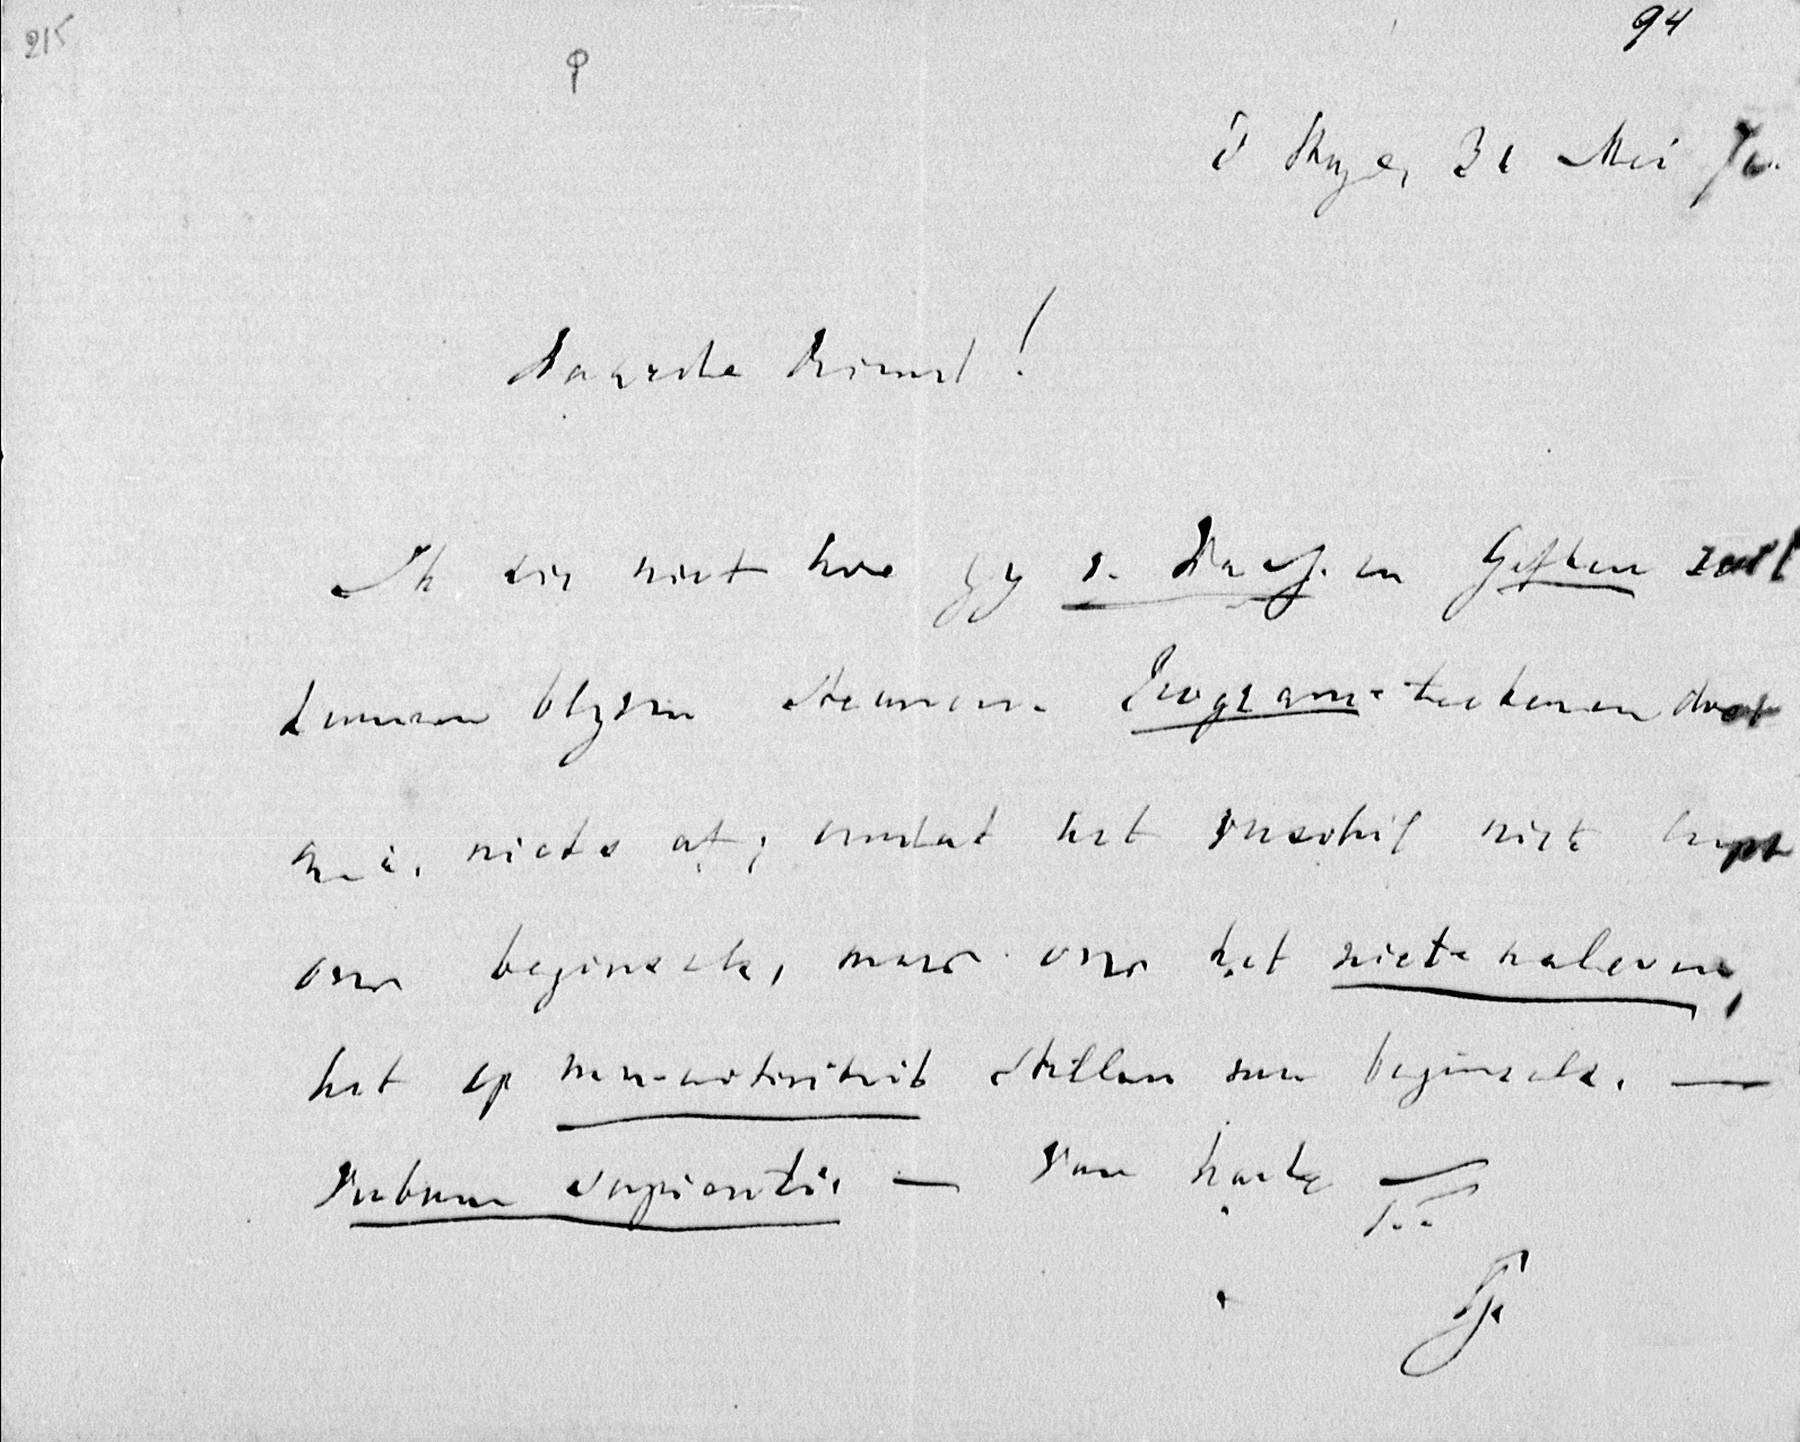 215
94
'S Hage, 31 Mei 70.
Waarde Vriend!
Ik zie niet hoe gy v. d. en Gefken zult
kunnen blyven steunen. Program-teekenen doet
m. i. niets af; omdat het verschil niet loopt
over beginsels, maar over het niet-naleven,
het op non-activiteit stellen van beginsels. —
Verbum sapienti. — Van harte
t. t.